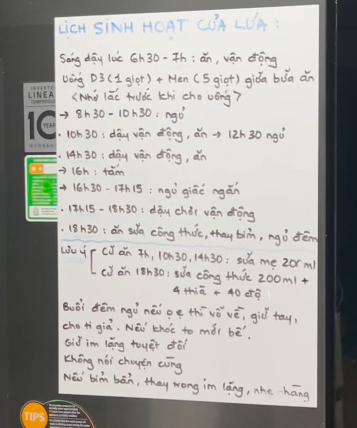 LỊCH SINH HOẠT CỦA LÚA :
Sáng dậy lúc 6h30 - 7h : ăn, vận động
Uống D3 (1 giọt) + Men (5 giọt) giữa bữa ăn
<Nhớ lắc trước khi cho uống>
→ 8h30 - 10h30 : ngủ
• 10h30 : dậy vận động, ăn → 12h30 ngủ
• 14h30 : dậy vận động, ăn
→ 16h : tắm
→ 16h30 - 17h15 : ngủ giấc ngắn
• 17h15 - 18h30 : dậy chơi vận động
• 18h30 : ăn sữa công thức, thay bỉm, ngủ đêm
Lưu ý [ Cữ ăn 7h, 10h30, 14h30 : sữa mẹ 200 ml
Cữ ăn 18h30 : sữa công thức 200ml +
4 thìa + 40 độ
Buổi đêm ngủ nếu ọ ẹ thì vỗ về, giữ tay,
cho ti giả. Nếu khóc to mới bế.
Giữ im lặng tuyệt đối
Không nói chuyện cùng
Nếu bỉm bẩn, thay trong im lặng, nhẹ nhàng
INVERTER
LINEA
COMPRESSOR
10
YEAR
TIPS